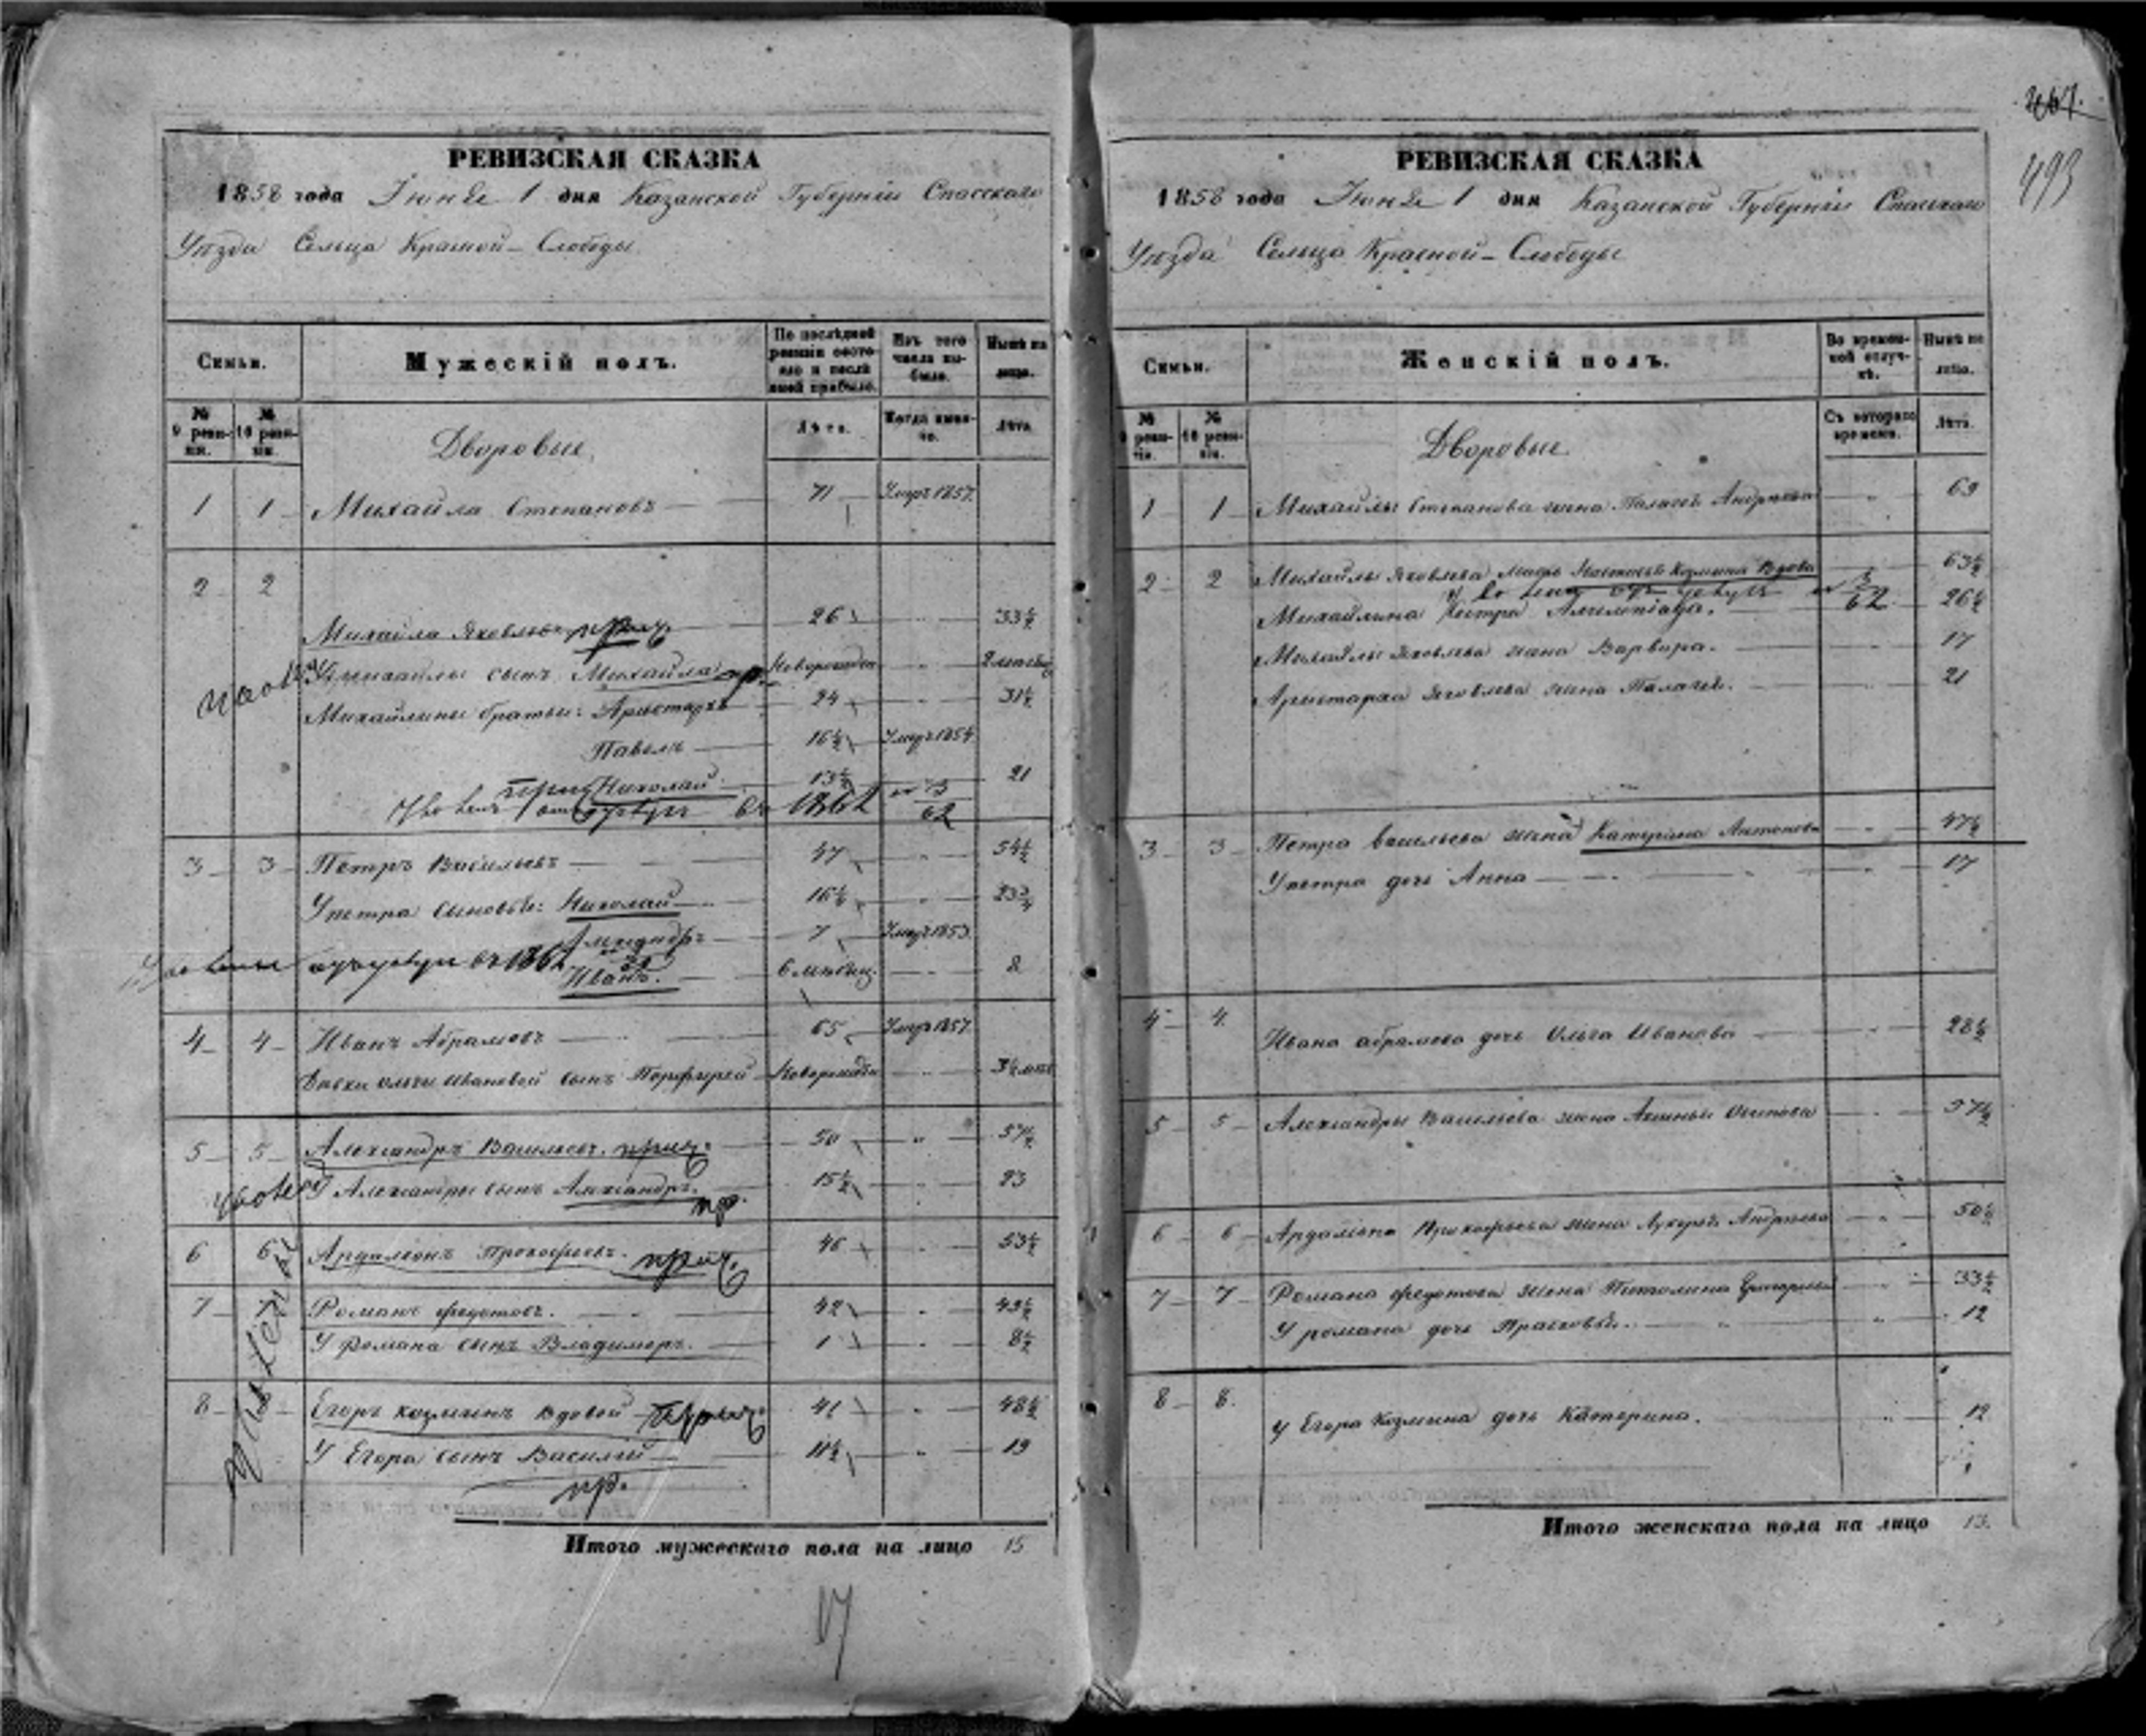 РЕВИЗСКАЯ СКАЗКА
1858 года Іюня 1 дня Казанской Губерніи Спасскаго
Уѣзда Сельца Красной-Слободы
Семьи.
Мужескій полъ.
По послѣдней ревизіи состояло и послѣ оной прибыло.
Изъ того числа выбыло.
Нынѣ на лицо.
№ 9 ревизіи.
№ 10 ревизіи.
Дворовые.
Лѣта.
Когда именно.
Лѣта.
1 1 Михайла Степановъ 71 Умеръ 1857
2 2
Михайла Яковлевъ 26 33½
У Михайлы сынъ Михайла пр. новорожден
Михайлины братья: Аристархъ 24 31½
Павелъ 16½ Умеръ 1854
Николай 13½ 21
1862
62
3 3 Петръ Васильевъ 47 54½
У петра сыновья: Николай 16½ 23¾
Александръ 7 Умеръ 1853
1861
Иванъ. 6 месяц. 8
4 4 Иванъ Абрамовъ 65 Умеръ 1857
Девки Ольги Ивановой сынъ Порфирей новорожден
5 5 Александръ Васильевъ. 50 „ 57½
У Александры сынъ Александръ. 15½ 23
пр.
6 6 Ардаліонъ Прокофьевъ. 46 53½
7 7 Романъ федотовъ. 42 49½
У Романа сынъ Владимеръ. 1 8½
8 8 Егоръ Козминъ Вдовой 41 48½
У Егора сынъ Василій 11½ 19
пр.
Итого мужескаго пола на лицо 15
17
493
РЕВИЗСКАЯ СКАЗКА
1858 года Іюня 1 дня Казанской Губерніи Спасскаго
Уѣзда Сельца Красной-Слободы
Семьи.
Женскій полъ.
Во временной отлучкѣ.
Нынѣ на лицо.
№ 9 ревизіи.
№ 10 ревизіи.
Дворовые.
Съ котораго времени.
Лѣта.
1 1 Михайлы Степанова жена Палагея Андреева „ 69
2 2 Михайлы Яковлева мать Настасья Козмина Вдова 63½
62
Михайлина сестра 26½
Михайлы Яковлева жена Варвара. 17
Аристарха Яковлева жена Палагея. 21
3 3 Петра Васильева жена Катерина Антонова 47½
У петра дочь Анна 17
4 4. Ивана абрамова дочь Ольга Иванова 28½
5 5 Александры Васильева жена Аксинья Осипова 57½
6 6 Ардаліона Прокофьева жена Лукерья Андреева 50½
7 7 Романа федотова жена Григорьева 33½
У романа дочь Прасковья. 12
8 8. у Егора Козмина дочь Катерина. 12
Итого женскаго пола на лицо 13.